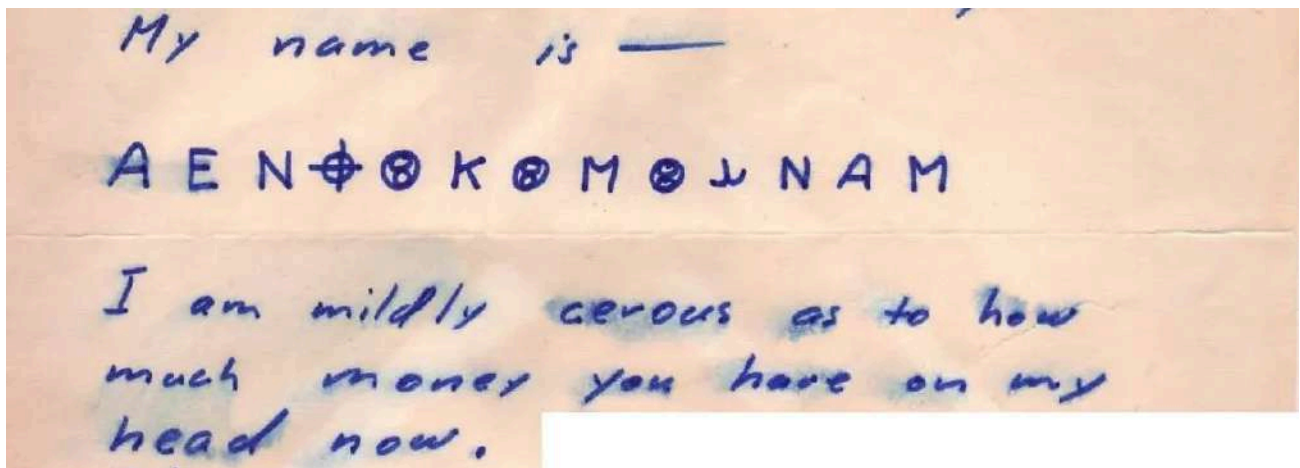 My name is —
A E N ⌖ ⊗ K ⊗ M ⊗ ⅄ N A M
I am mildly cerous as to how
much money you have on my
head now.